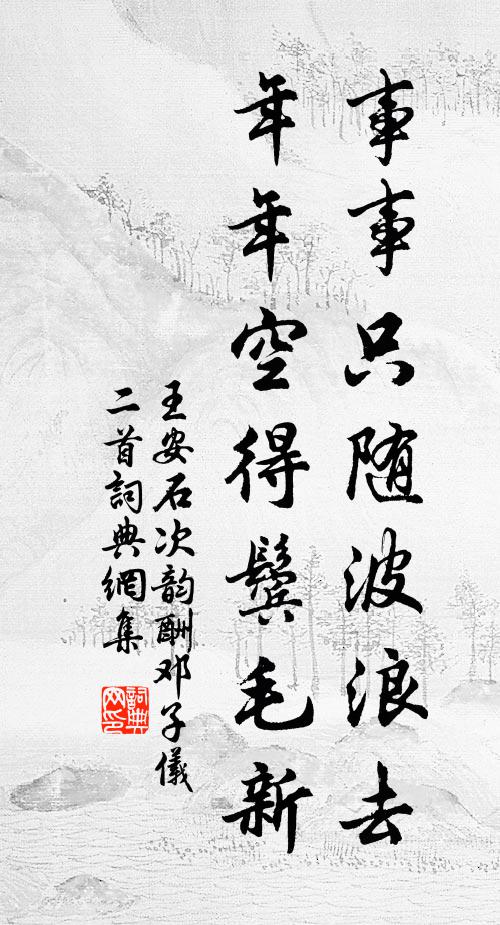 事事只随波浪去
年年空得鬓毛新
王安石次韵酬邓子儀
二首詞典網集
詞典网印